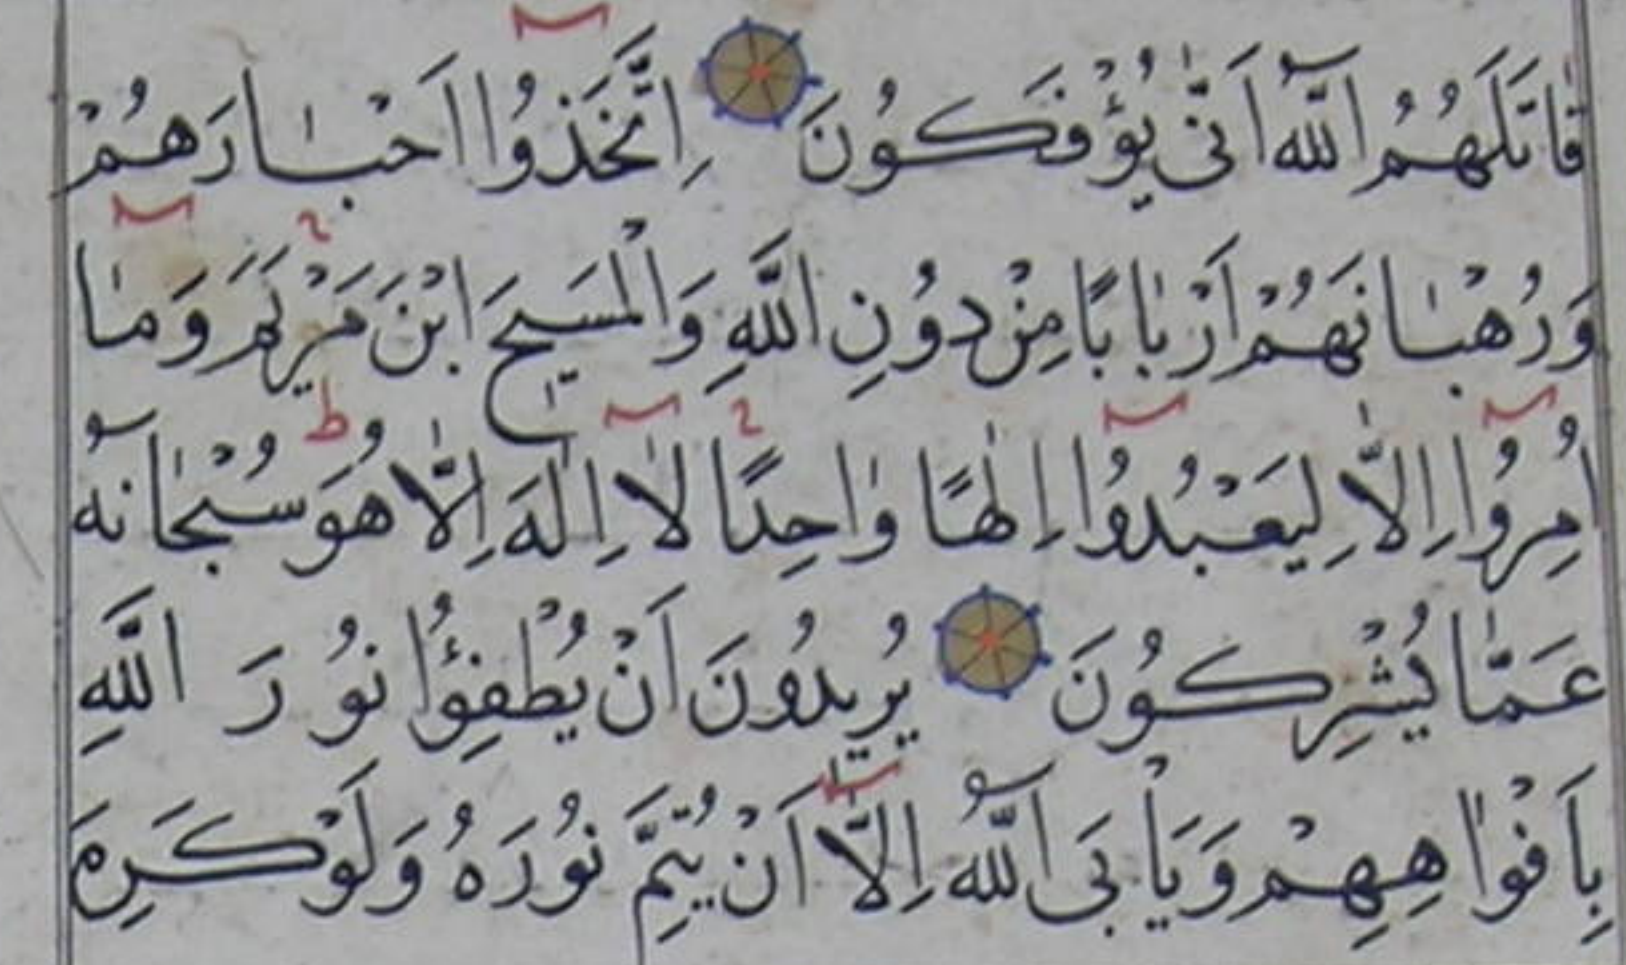 قَاتَلَهُمُ اللّٰهُ اَنّٰى يُؤْفَكُونَ اِتَّخَذُوا اَحْبَارَهُمْ
وَرُهْبَانَهُمْ اَرْبَابًا مِنْ دُونِ اللَّهِ وَالْمَسِيحَ ابْنَ مَرْيَمَ وَمَا
اُمِرُوا اِلَّا لِيَعْبُدُوا اِلٰهًا وَاحِدًا لَا اِلٰهَ اِلَّا هُوَ ط سُبْحَانَهُ
عَمَّا يُشْرِكُونَ يُرِيدُونَ اَنْ يُطْفِئُوا نُورَ اللَّهِ
بِاَفْوَاهِهِمْ وَيَاْبَى اللّٰهُ اِلَّا اَنْ يُتِمَّ نُورَهُ وَلَوْ كَرِهَ